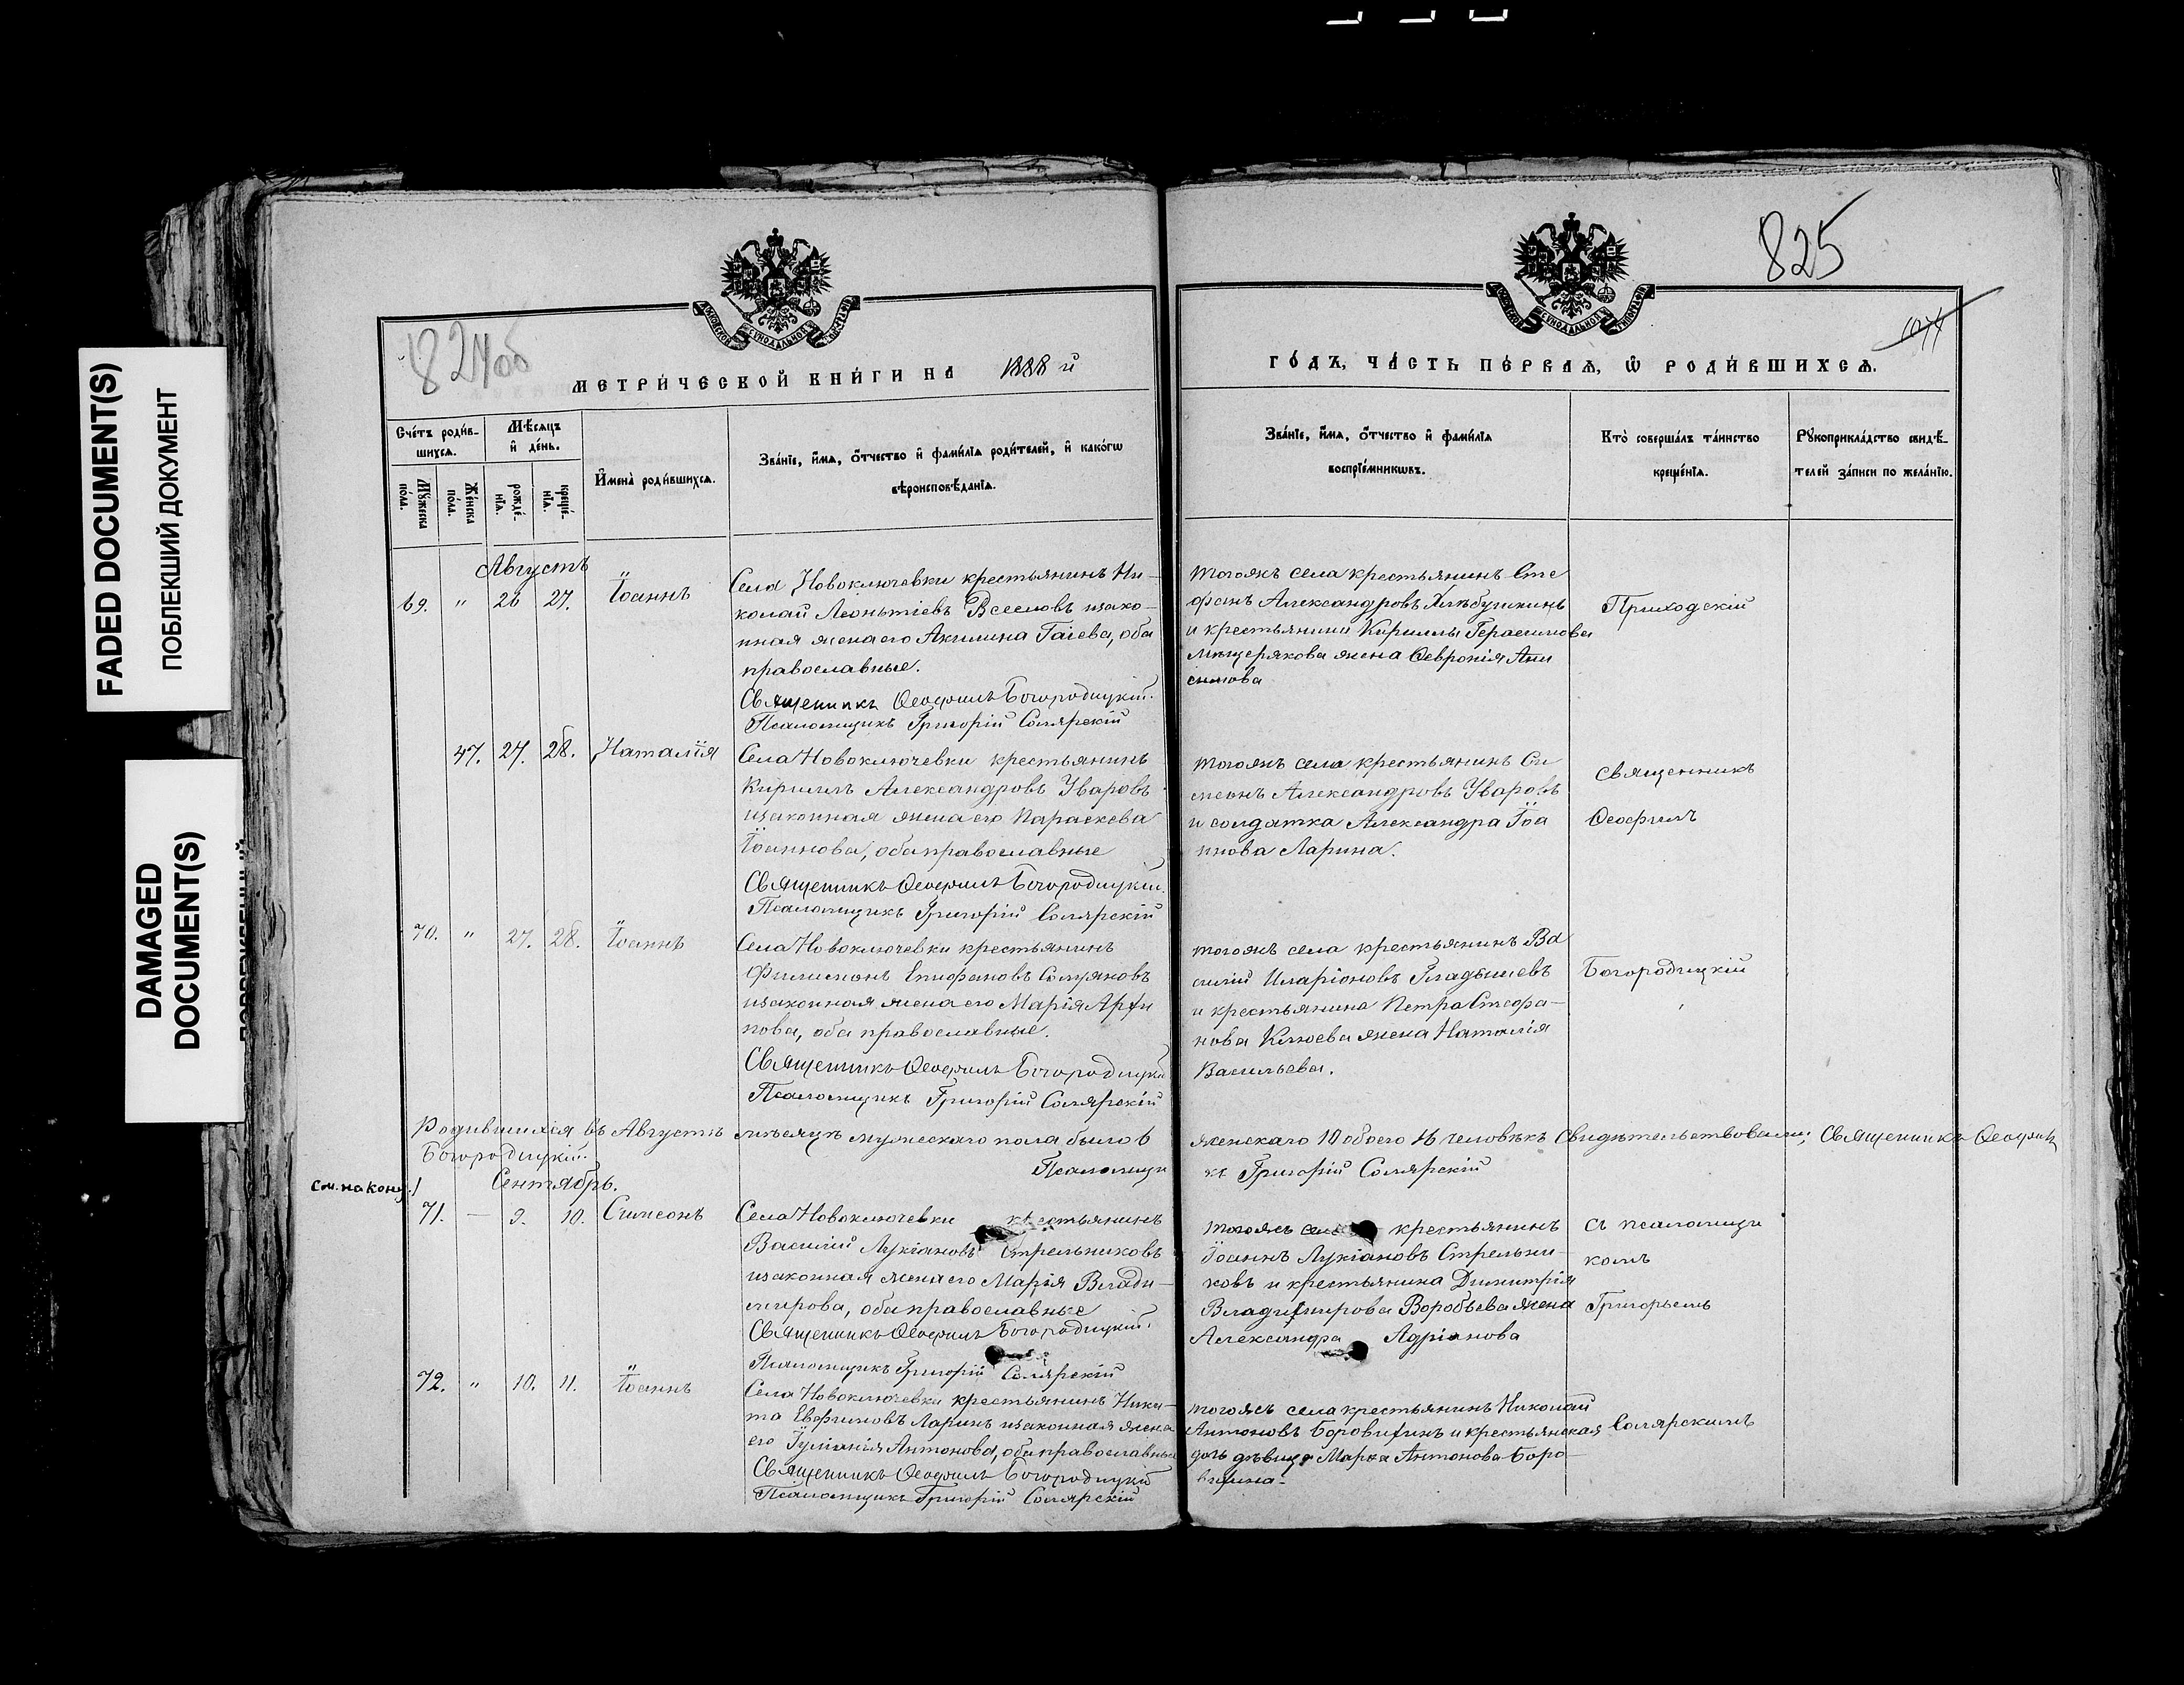 FADED DOCUMENT(S)
ПОБЛЕКШИЙ ДОКУМЕНТ
DAMAGED
DOCUMENT(S)
824об
825
МЕТРИ́ЧЕСКОЙ КНИ́ГИ НА 1888 й
ГО́ДЪ, ЧА́СТЬ ПЕ́РВАѦ, Ѽ РОДИ́ВШИХСѦ.
Сче́тъ роди́в-
шихсѧ.
Мѣ́сѧцъ
и҆ де́нь.
Мꙋ́жеска
по́ла.
Же́нска
по́ла.
рожде́-
нїѧ.
креще́-
нїѧ.
И҆мена̀ роди́вшихсѧ.
Зва́нїе, и҆́мѧ, ѻ҆́тчество и҆ фами́лїѧ роди́телей, и҆ како́гѡ
вѣроисповѣ́данїѧ.
Зва́нїе, и҆́мѧ, ѻ҆́тчество и҆ фами́лїѧ
воспрїе́мникѡвъ.
Кто̀ соверша́лъ та́инство
креще́нїѧ.
Рꙋкоприкла́дство свидѣ́-
телей за́писи по жела́нїю.
Августъ
69. " 26 27. Іоаннъ
Села Новоключевки крестьянинъ Ни-
колай Леонтіевъ изако-
нная жена его Акилина Гаіева, оба
православные.
Священникъ Ѳеофилъ Богородицкій.
Псаломщикъ Григорій Солярскій
тогожъ села крестьянинъ Сте
фанъ Александровъ Хлѣбушкинъ
и крестьянина Кирилла Герасимова
Мещерякова жена Ѳевронія Ани
симова
Приходскій
47. 27. 28. Наталія
Села Новоключевки крестьянинъ
Кириллъ Александровъ Уваровъ
изаконная жена его Параскева
Іоаннова, оба православные
Священникъ Ѳеофилъ Богородицкій.
Псаломщикъ Григорій Солярскій
тогожъ села крестьянинъ Си
меонъ Александровъ Уваровъ
и солдатка Александра Іоа
ннова Ларина.
священникъ
Ѳеофилъ
70. " 27. 28. Іоаннъ
Села Новоключевки крестьянинъ
Филимонъ Епифановъ
изаконная жена его Марія
нова, оба православные.
Священникъ Ѳеофилъ Богородицкій
Псаломщикъ Григорій Солярскій
тогожъ села крестьянинъ Ва
силій Иларіоновъ Гладышевъ
и крестьянина Петра Стефа-
нова Клюева жена Наталія
Васильева.
Богородицкій
Родившихся въ Августѣ мѣсяцѣ мужескаго пола было 6 женскаго 10 обоего 16 человѣкъ Свидѣтельствовали, Священникъ Ѳеофилъ
Богородицкій. Псаломщи къ Григорій Солярскій
Сентябрь.
см. на конц.!
71. — 9. 10. Симеонъ
Села Новоключевки крестьянинъ
Василій Лукіановъ Стрельниковъ
изаконная жена его Марія Влади-
мирова, оба православные
Священникъ Ѳеофилъ Богородицкій.
Псаломщикъ Григорій Солярскій
тогожъ села крестьянинъ
Іоаннъ Лукіановъ Стрельни-
ковъ и крестьянина Димитрія
Владимирова Воробьева жена
Александра Адріанова
съ псаломщи
комъ
Григорьемъ
72. " 10. 11. Іоаннъ
Села Новоключевки крестьянинъ Ники-
та Евфимовъ Ларинъ изаконная жена
его Іуліанія Антонова, оба православные
Священникъ Ѳеофилъ Богородицкій
Псаломщикъ Григорій Солярскій
тогожъ села крестьянинъ Николай
Антоновъ и крестьянская
дочь дѣвица Антонова
Солярскимъ